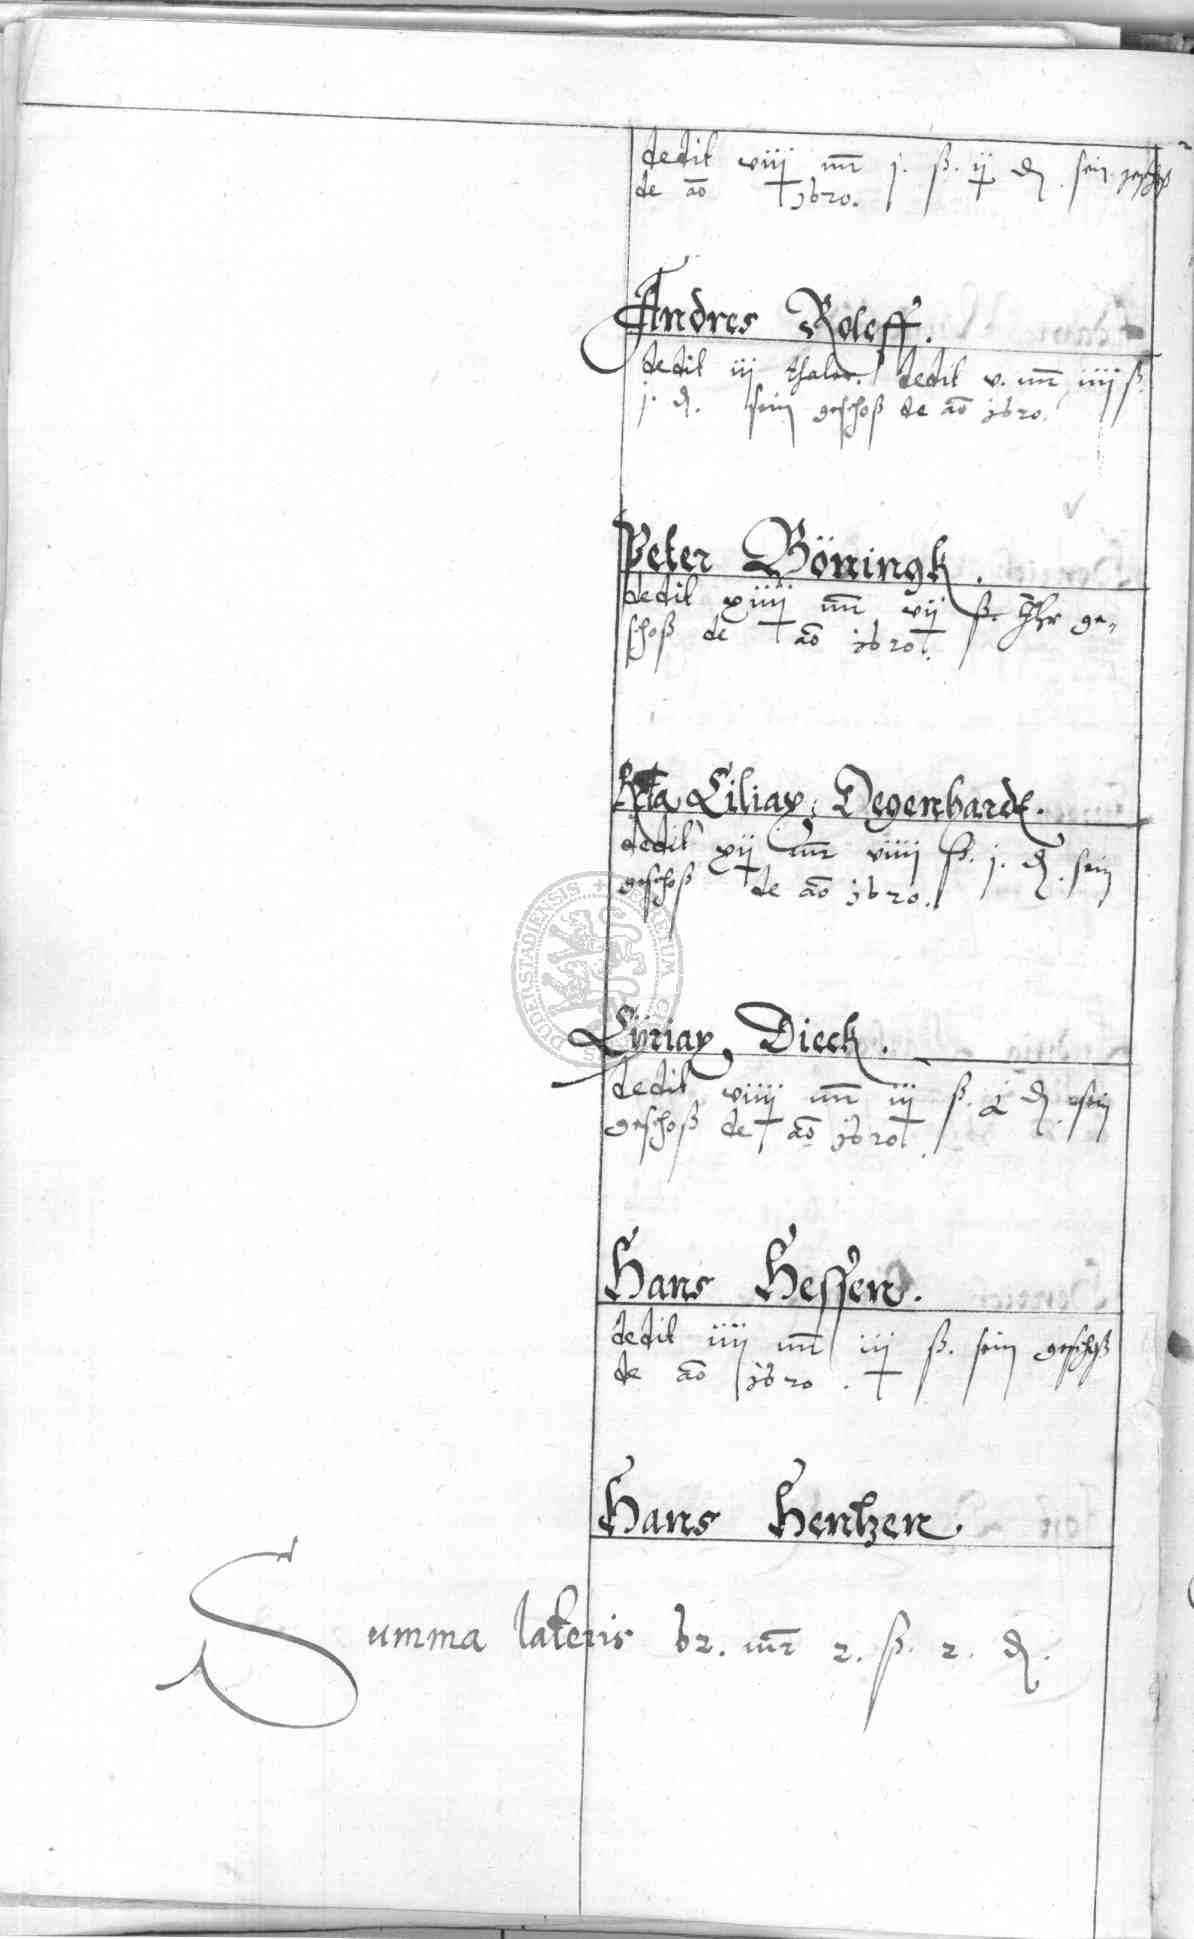 dedit viiij mr j. ß. ij ₰. sein geschoß
de ao 1620.
Andres Roleff.
dedit iij thaler. dedit v. mr iiij ß.
j. ₰. sein geschoß de ao 1620.
Peter Böningk.
dedit xiiij mr vij ß. Ihr ge-
schoß de ao 1620.
Ciliax Degenhardt.
dedit xij mr viiij ß. j. ₰. sein
geschoß de ao 1620.
Cÿriax Dieck.
dedit viiij mr iij ß. ₰. sein
geschoß de ao 1620.
Hans Hessen.
dedit iiij mr iij ß. sein geschoß
de ao 1620.
Hans Hentzen.
Summa lateris 62. mr 2. ß. 2. ₰.
DUDERSTADIENSIS